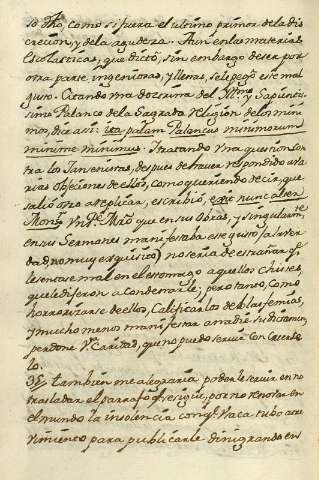 so dho, como si fuera el ultimo primor de la dis
crecion, y de la agudeza. Aun en las materias
Escolasticas, que dictó, sin embargo de ser por
otra parte, ingeniosas, y llenas, se le pegó este mal
gusto. Citando una doctrina del Illmo. y Sapientis
simo Palanco de la Sagrada religion de los mini
mos, dice assi: ita palam Palancus minimorum
minime minimus. Tratando una question con
tra los Jansenistas, despues de haver respondido a va
rias objeciones de ellos, como queriendo decir, que
salió otro a replicar, escribió, exit nunc alter
Mons. Un Pe. Mro. que en sus Obras, y singularmte.
en sus Sermones manifestaba este gusto (a la ver
dad no muy exquisito) no seria de estrañar qe.
le sentase mal en el estomago aquellos chistes,
que le dixeron al condenarle; pero tanto, como
horrorizarse de ellos, Calificarlos de blasfemias,
y mucho menos manifestar a nadie su dictamen,
perdone Va. Caridad, que no puedo servir con creerlo
lo.
36 tambien me alegraria poderle servir en no
trasladar el parrafo qe. se sigue, por no renovar en
el mundo la insolencia con qe. Vaca tubo atre
vimiento para publicarle denigrando en